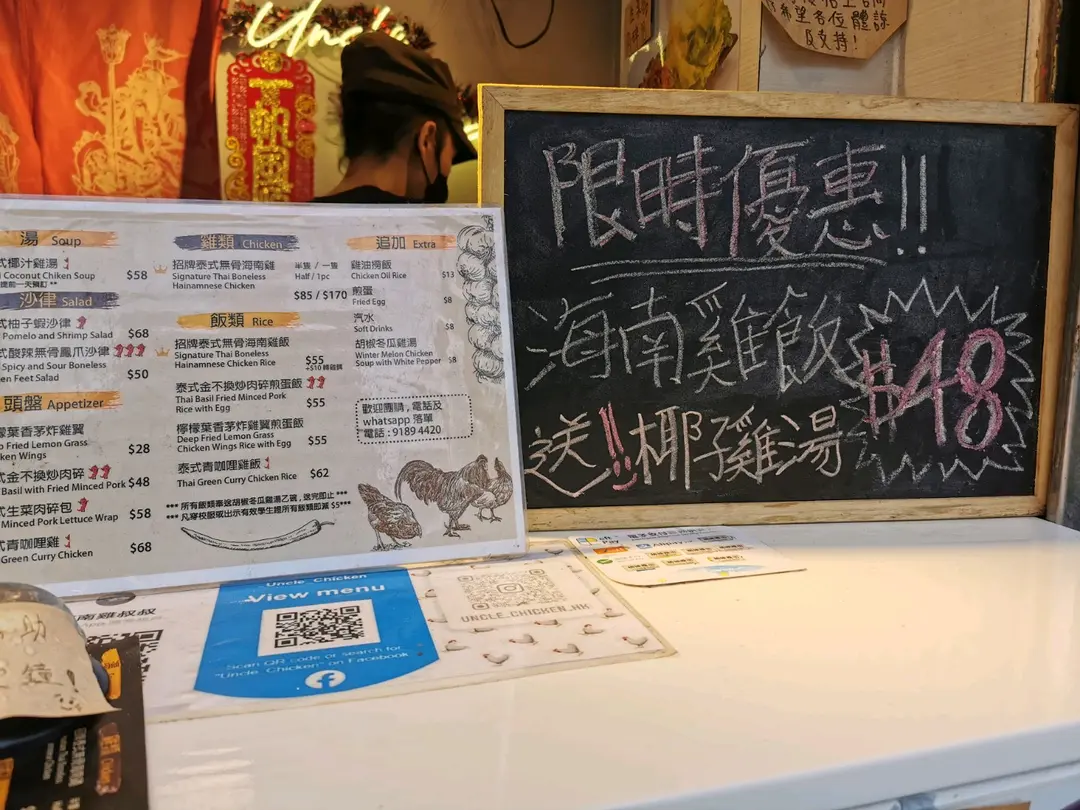 Uncle
希望各位體諒
及支持!
限時優惠!!
海南雞飯
$48
送!! 椰子雞湯
湯 Soup
式椰汁雞湯
Coconut Chiken Soup
$58
沙律 Salad
式柚子蝦沙律
Pomelo and Shrimp Salad
$68
式酸辣無骨鳳爪沙律
Spicy and Sour Boneless
en Feet Salad
$50
頭盤 Appetizer
檬葉香茅炸雞翼
Fried Lemon Grass
ken Wings
$28
式金不換炒肉碎
Basil with Fried Minced Pork $48
式生菜肉碎包
Minced Pork Lettuce Wrap
$58
式青咖哩雞
Green Curry Chicken
$68
雞類 Chicken
招牌泰式無骨海南雞
Signature Thai Boneless
Hainamnese Chicken
半隻 / 一隻
Half / 1pc
$85 / $170
飯類 Rice
招牌泰式無骨海南雞飯
Signature Thai Boneless
Hainamnese Chicken Rice
$55
泰式金不換炒肉碎煎蛋飯
Thai Basil Fried Minced Pork
Rice with Egg
$55
檸檬葉香茅炸雞翼煎蛋飯
Deep Fried Lemon Grass
Chicken Wings Rice with Egg
$55
泰式青咖哩雞飯
Thai Green Curry Chicken Rice
$62
*** 所有飯類奉送胡椒冬瓜雞湯乙碗 , 送完即止 ***
*** 凡穿校服或出示有效學生證所有飯類即減 $5***
追加 Extra
雞油撈飯
Chicken Oil Rice
$13
煎蛋
Fried Egg
$8
汽水
Soft Drinks
$8
胡椒冬瓜雞湯
Winter Melon Chicken
Soup with White Pepper
$8
歡迎團購 , 電話及
whatsapp 落單
電話 : 9189 4420
南雞叔叔
Uncle Chicken
View menu
Scan QR code or search for
"Uncle Chicken" on Facebook
UNCLE.CHICKEN.HK